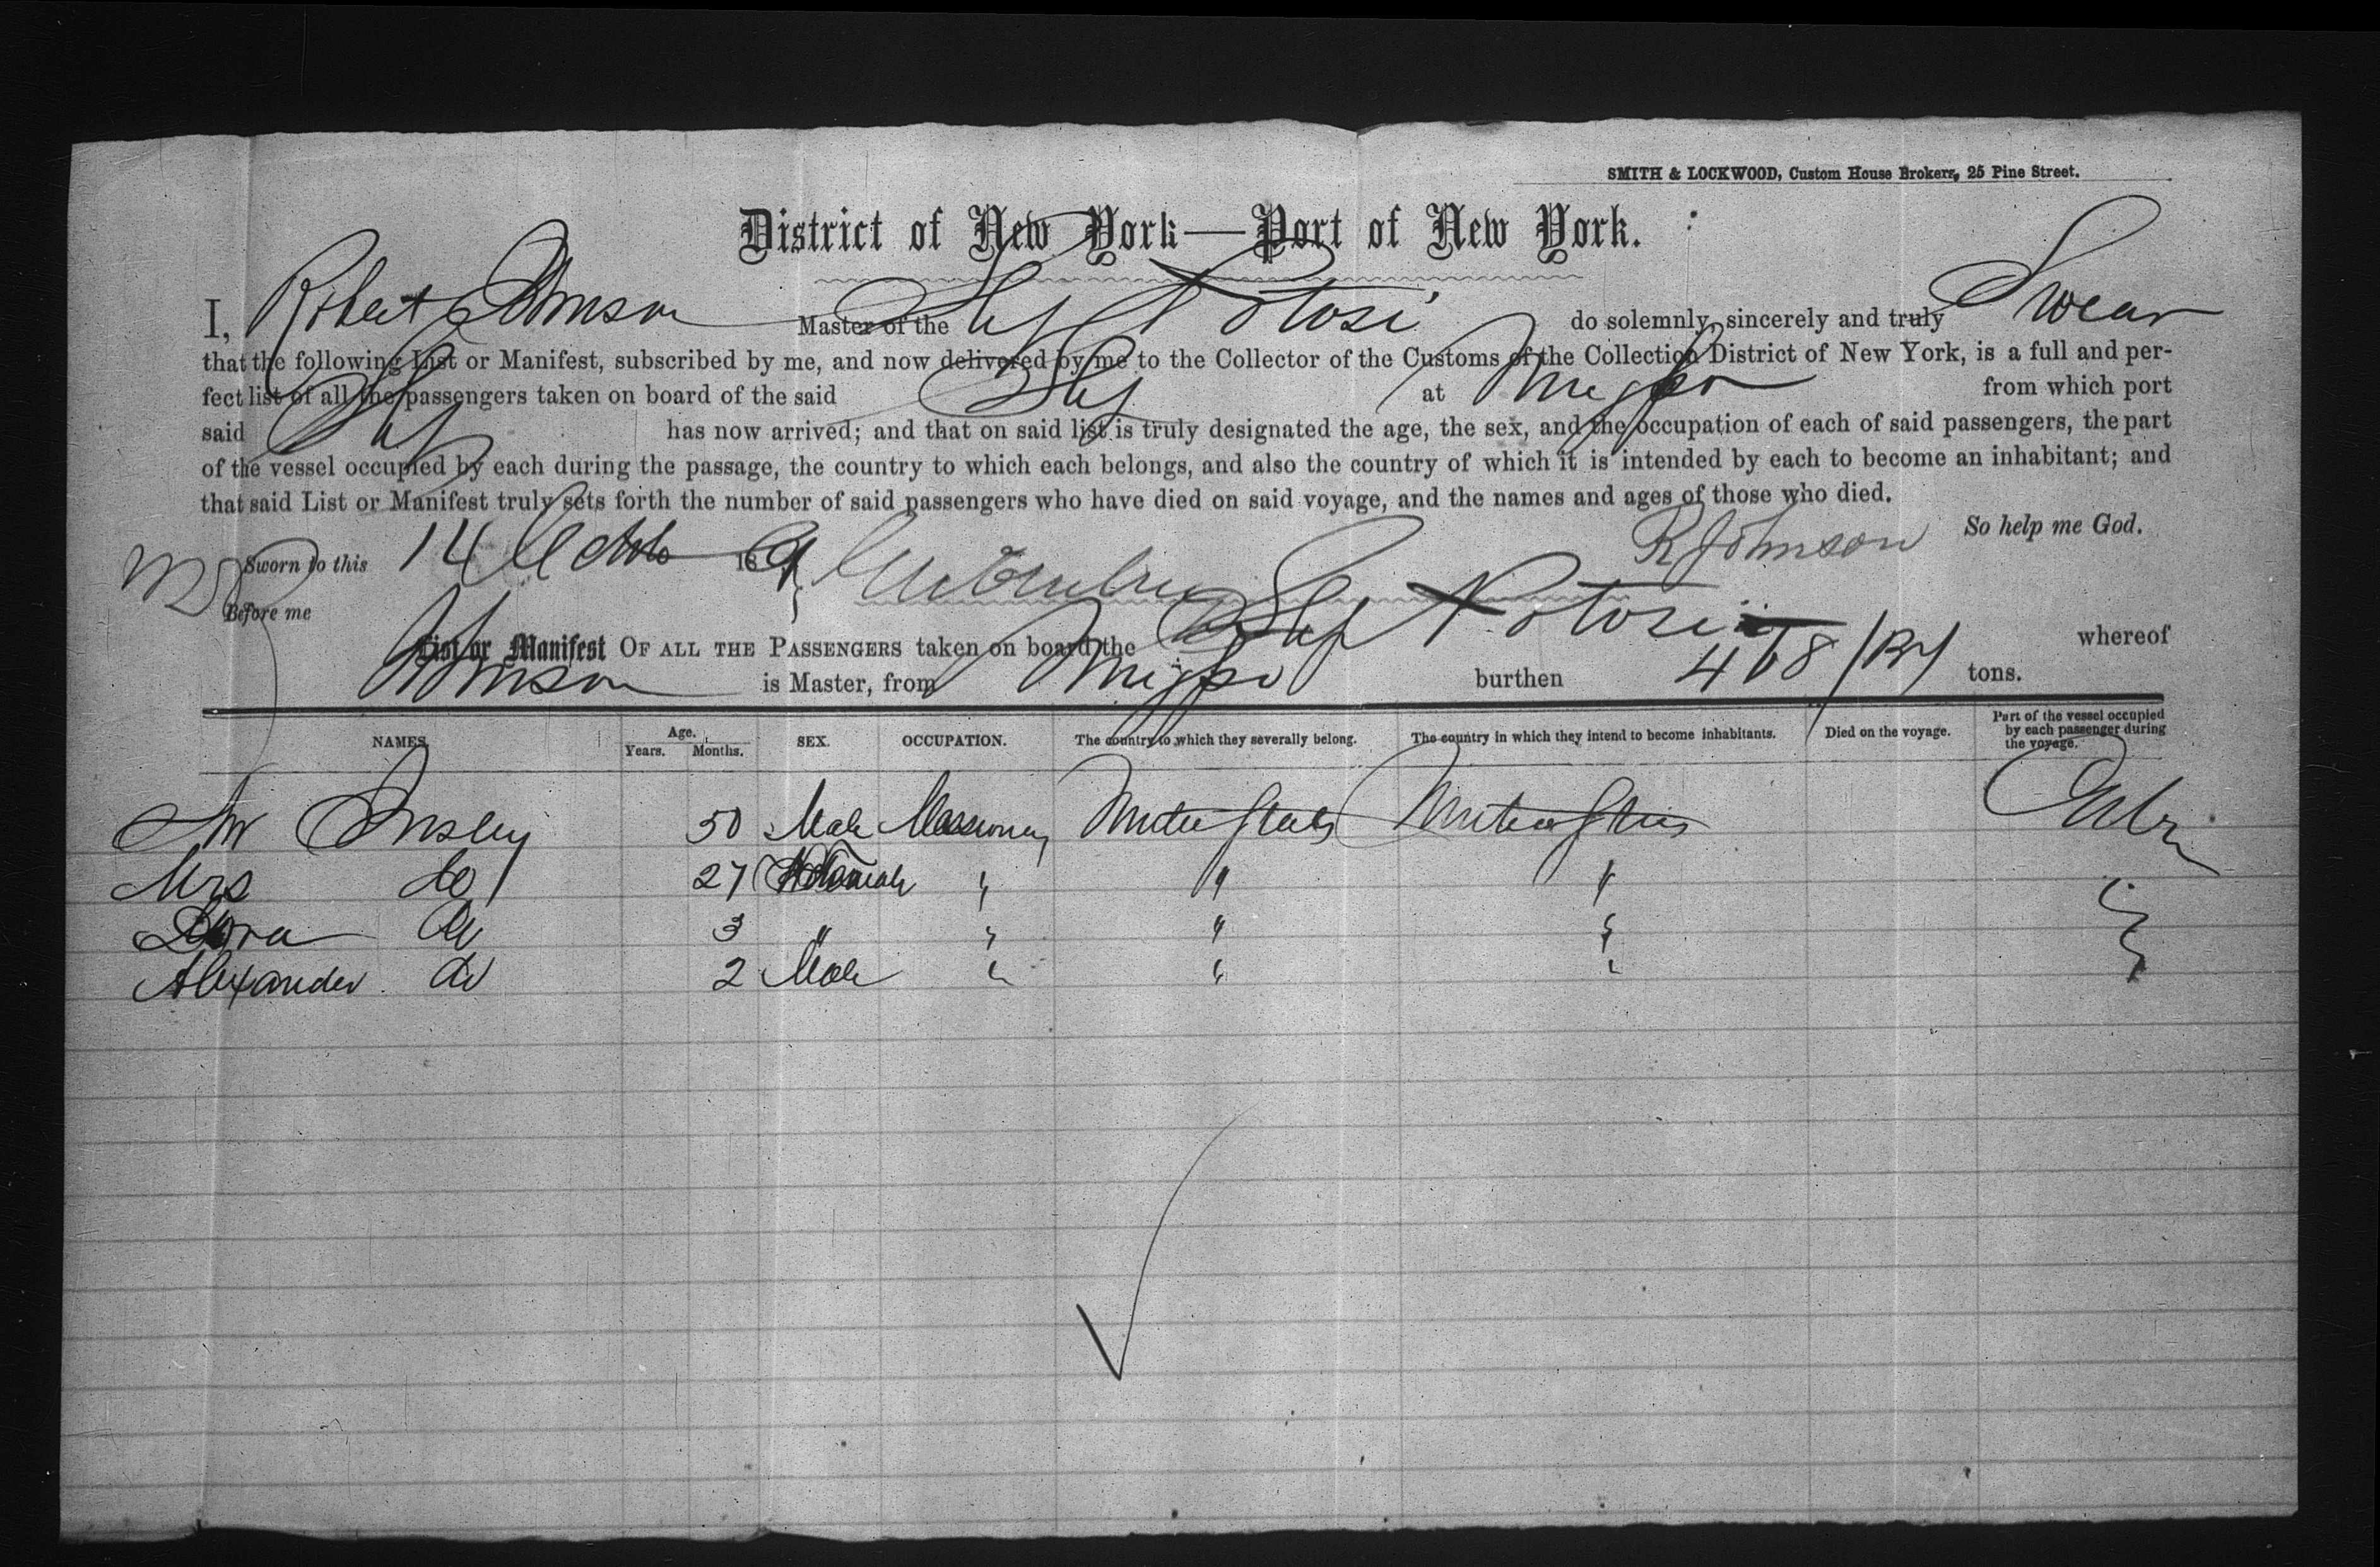 SMITH & LOCKWOOD, Custom House Brokers, 25 Pine Street.
District of New York—Port of New York.
I, Robert Johnson Master of the Ship Potosi do solemnly, sincerely and truly Swear
that the following List or Manifest, subscribed by me, and now delivered by me to the Collector of the Customs of the Collection District of New York, is a full and per-
fect list of all the passengers taken on board of the said Ship at Ningpo from which port
said Ship has now arrived; and that on said list is truly designated the age, the sex, and the occupation of each of said passengers, the part
of the vessel occupied by each during the passage, the country to which each belongs, and also the country of which it is intended by each to become an inhabitant; and
that said List or Manifest truly sets forth the number of said passengers who have died on said voyage, and the names and ages of those who died.
R Johnson So help me God.
Sworn to this 14 1869
Before me
List or Manifest OF ALL THE PASSENGERS taken on board the Ship Potosi whereof
Johnson is Master, from Ningpo burthen tons.
NAMES. Age. Years. Months. SEX. OCCUPATION. The country to which they severally belong. The country in which they intend to become inhabitants. Died on the voyage. Part of the vessel occupied by each passenger during the voyage.
Mr 50 Male Missionary United States United States Cabin
Mrs do 27 Female " " "
Dora do 3 " " " "
Alexander do 2 Male " " "